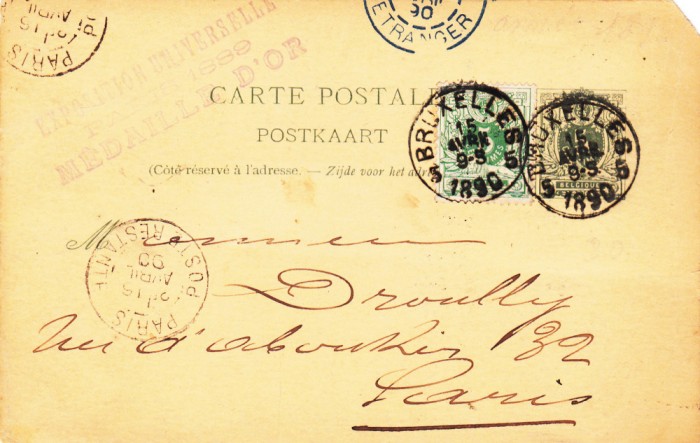 PARIS
15
AVRIL
90
ETRANGER
EXPOSITION UNIVERSELLE
1889
MÉDAILLE D'OR
CARTE POSTALE
POSTKAART
(Côté réservé à l'adresse. — Zijde voor het
BRUXELLES
15
AVRIL
9-S
5 1890 5
BRUXELLES
15
AVRIL
9-S
5 1890 5
BELGIQUE
Monsieur
Droully
rue d'aboukir 32
Paris
PARIS
AVRIL
90
POSTE RESTANTE